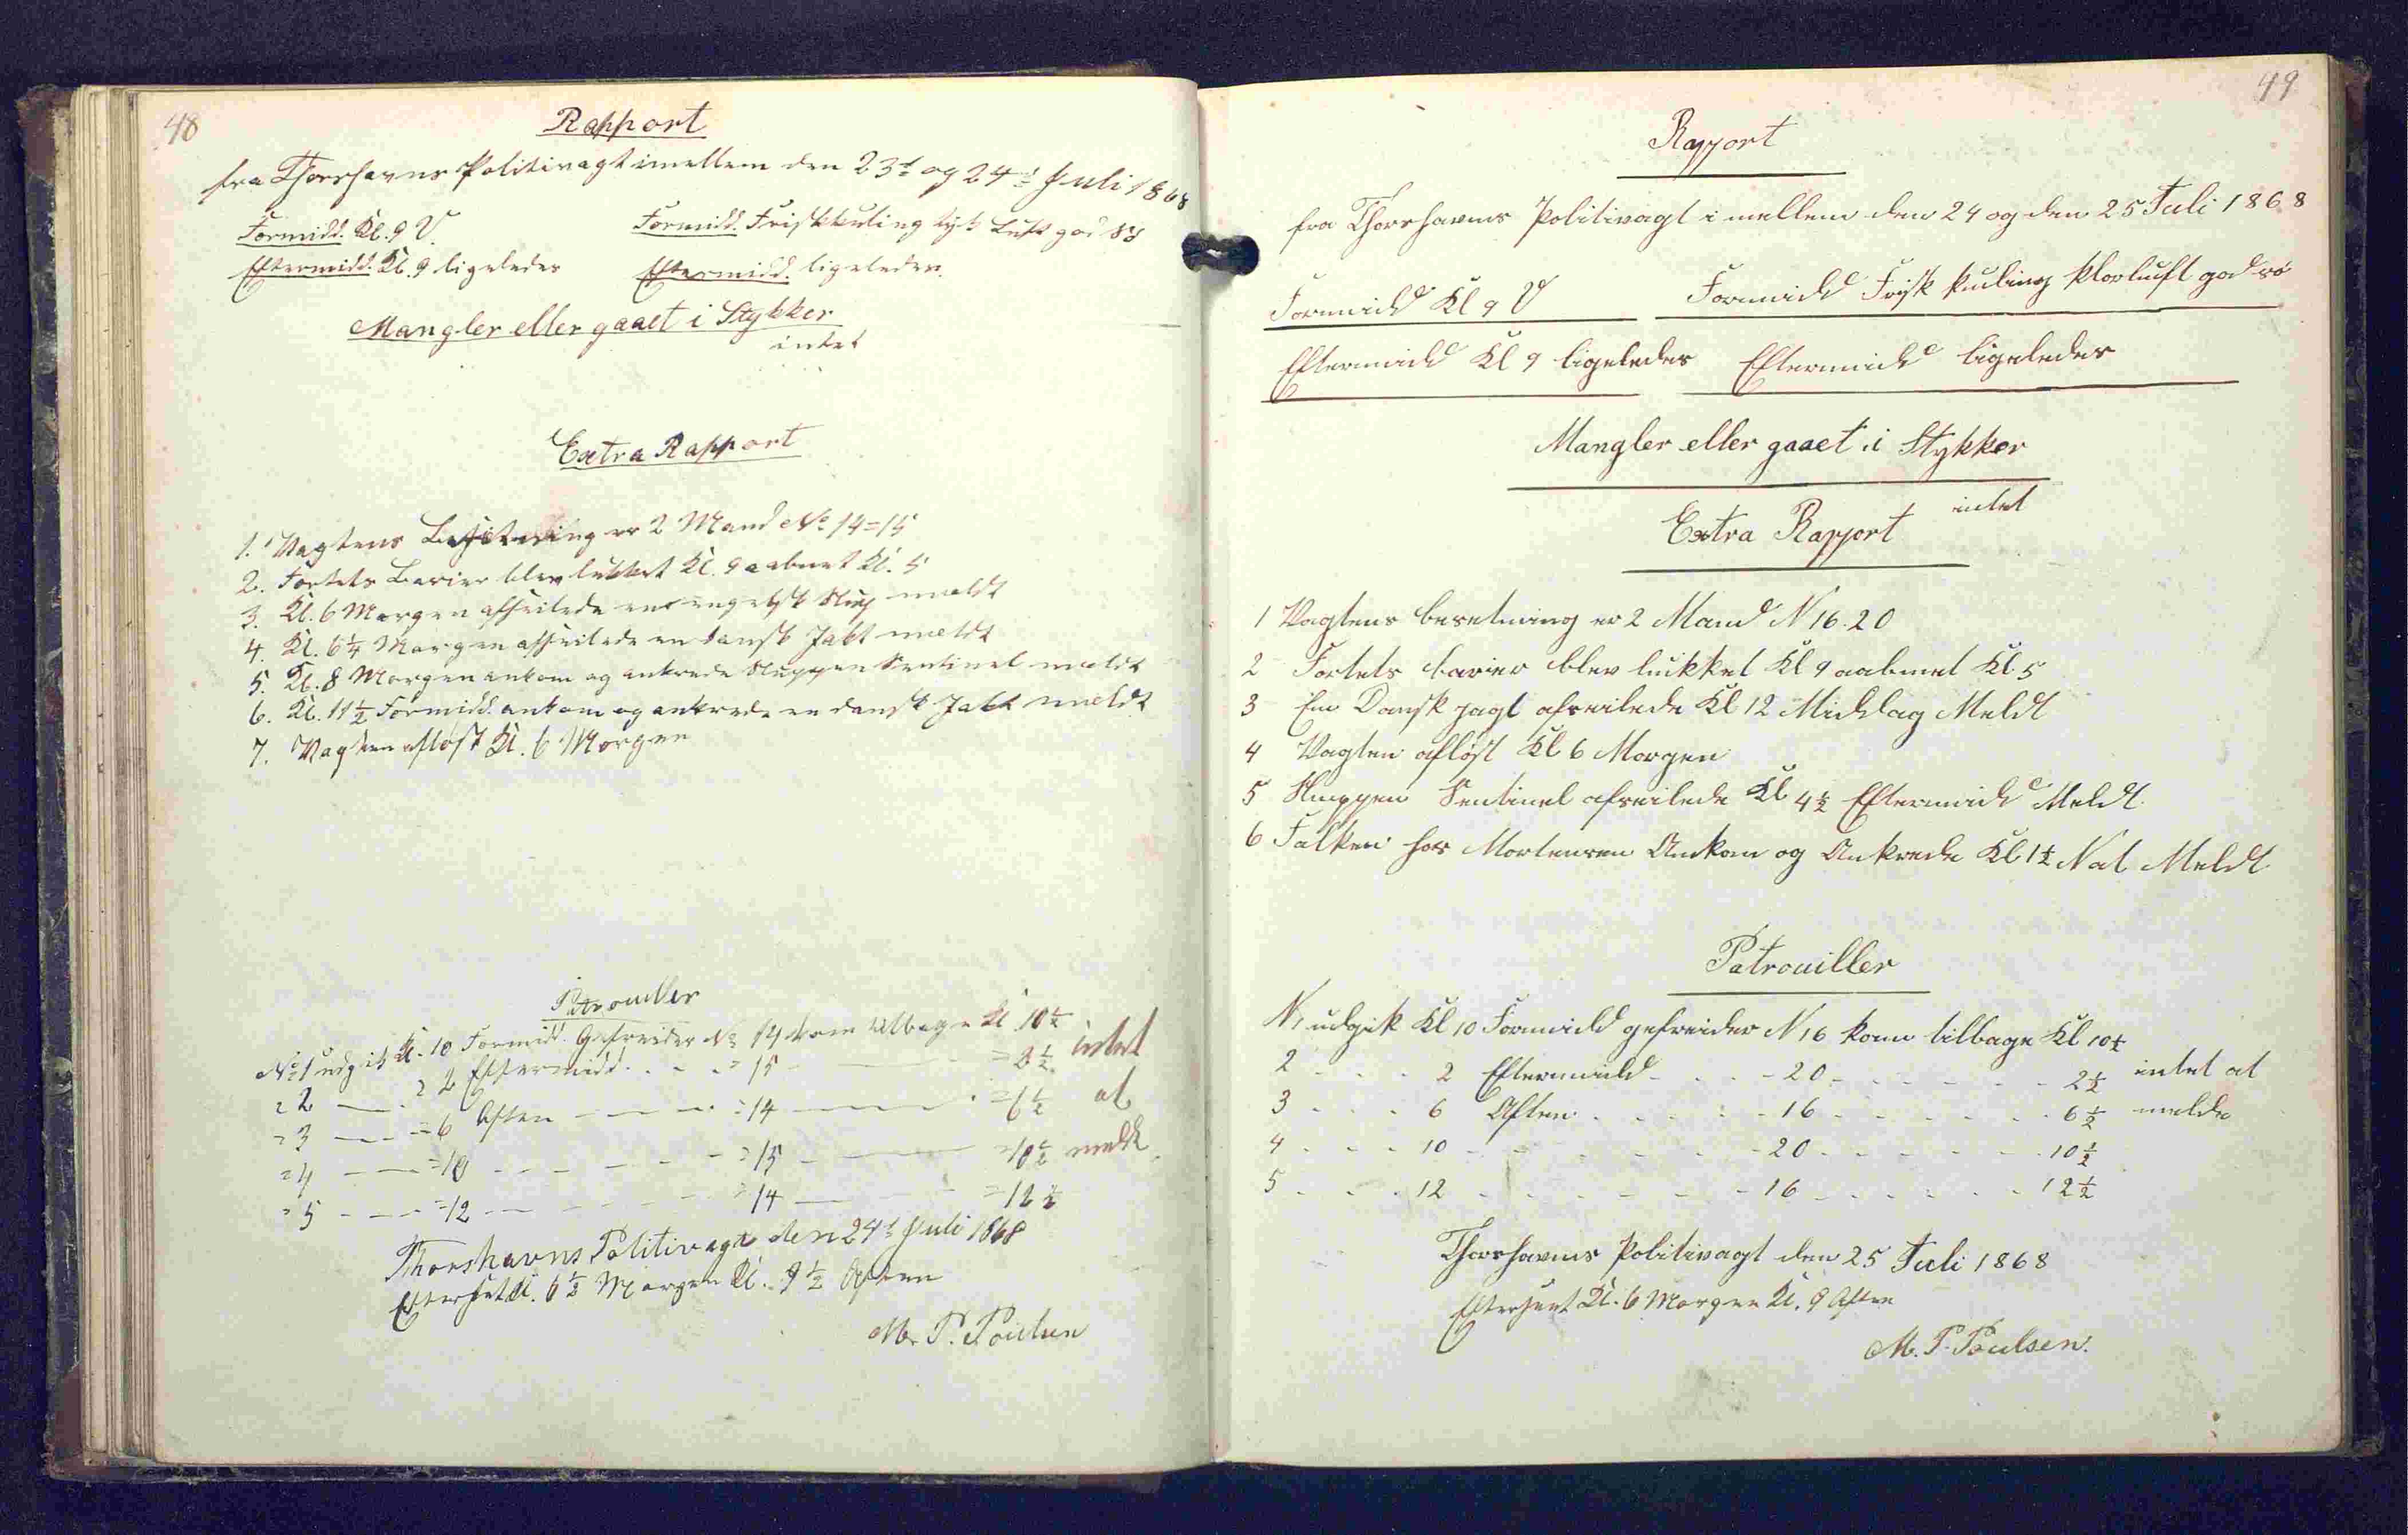 48
Rapport
fra Thorshavns Politivagt imellem den 23d og 24d Juli 1868
Formidd. Kl. 9 V. Formidd. Frisk kuling tyk Luft god Sø
Eftermidd. Kl. 9 ligeledes Eftermidd. ligeledes.
Mangler eller gaaet i Stykker
intet
Extra Rapport
1. Vagtens Besætning er 2 Mand No 14=15
2. Fortets Barier blev lukket Kl. 9 aabnet Kl. 5
3. Kl. 6 Morgen afseilede en engelsk Slup meldt
4. Kl. 6 1/4 Morgen afseilede en dansk Jakt meldt
5. Kl. 8 Morgen ankom og ankrede Sluppen Sentinel meldt
6. Kl. 11 1/2 Formidd. ankom og ankrede en dansk Jakt meldt
7. Vagten afløst Kl. 6 Morgen
Patrouiller
No 1 udgik Kl. 10 Formidd. Gefreider No 14 kom tilbage Kl 10 1/2
= 2 — = 2 Eftermidd. - - = 15 — = 2 1/2 intet
= 3 — = 6 Aften — = 14 — = 6 1/2 at
= 4 — = 10 - - - = 15 — = 10 1/2 meld.
= 5 - - - = 12 - - - = 14 — = 12 1/2
Thorshavns Politivagt den 24d Juli 1868
Efterseet Kl. 6 1/2 Morgen Kl. 9 1/2 Aften
M. P. Poulsen
49
Rapport
fra Thorshavns Politivagt i mellem den 24 og den 25 Juli 1868
Formidd Kl 9 V Formidd Frisk kuling klorluft god sø
Eftermidd Kl 9 ligeledes Eftermidd ligeledes
Mangler eller gaaet i Stykker
intet
Extra Rapport
1 Vagtens besetning er 2 Mand N 16. 20
2 Fortets barier blev lukket Kl 9 aabnet Kl. 5
3 En Dansk jagt afseilede Kl 12 Middag Meldt
4 Vagten afløst Kl 6 Morgen
5 Sluppen Sentinel afseilede Kl 4 1/2 Eftermidd Meldt.
6 Falken hos Mortensen Ankom og Ankrede Kl 1 1/2 Nat Meldt
Patrouiller
N 1 udgik Kl 10 Formidd gefreider N 16 kom tilbage Kl 10 1/2
2 - - - 2 Eftermidd - - - 20 - - - - 2 1/2 intet at
3 - - - 6 Aften - - - 16 - - - - 6 1/2 melde
4 - - - 10 - - - - 20 - - - - 10 1/2
5 - - - 12 - - - - 16 - - - - 12 1/2
Thorshavns Politivagt den 25 Juli 1868
Efterseet Kl. 6 Morgen Kl. 9 Aften
M. P. Poulsen.